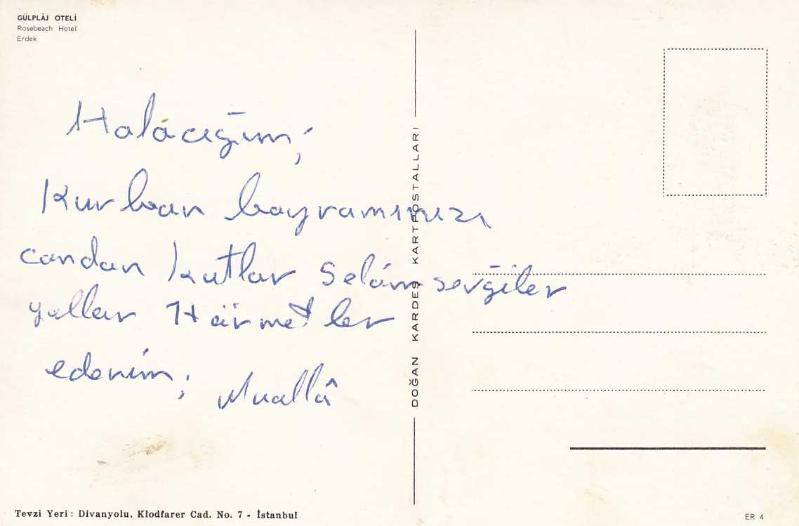 GÜLPLÂJ OTELİ
Rosebeach Hotel
Erdek
Halácığım;
Kurban bayramınızı
candan kutlar Selâm sevğiler
yollar Hürmetler
ederim; Muallâ
DOĞAN KARDEŞ KARTPOSTALLARI
Tevzi Yeri: Divanyolu, Klodfarer Cad. No. 7 - İstanbul
ER 4